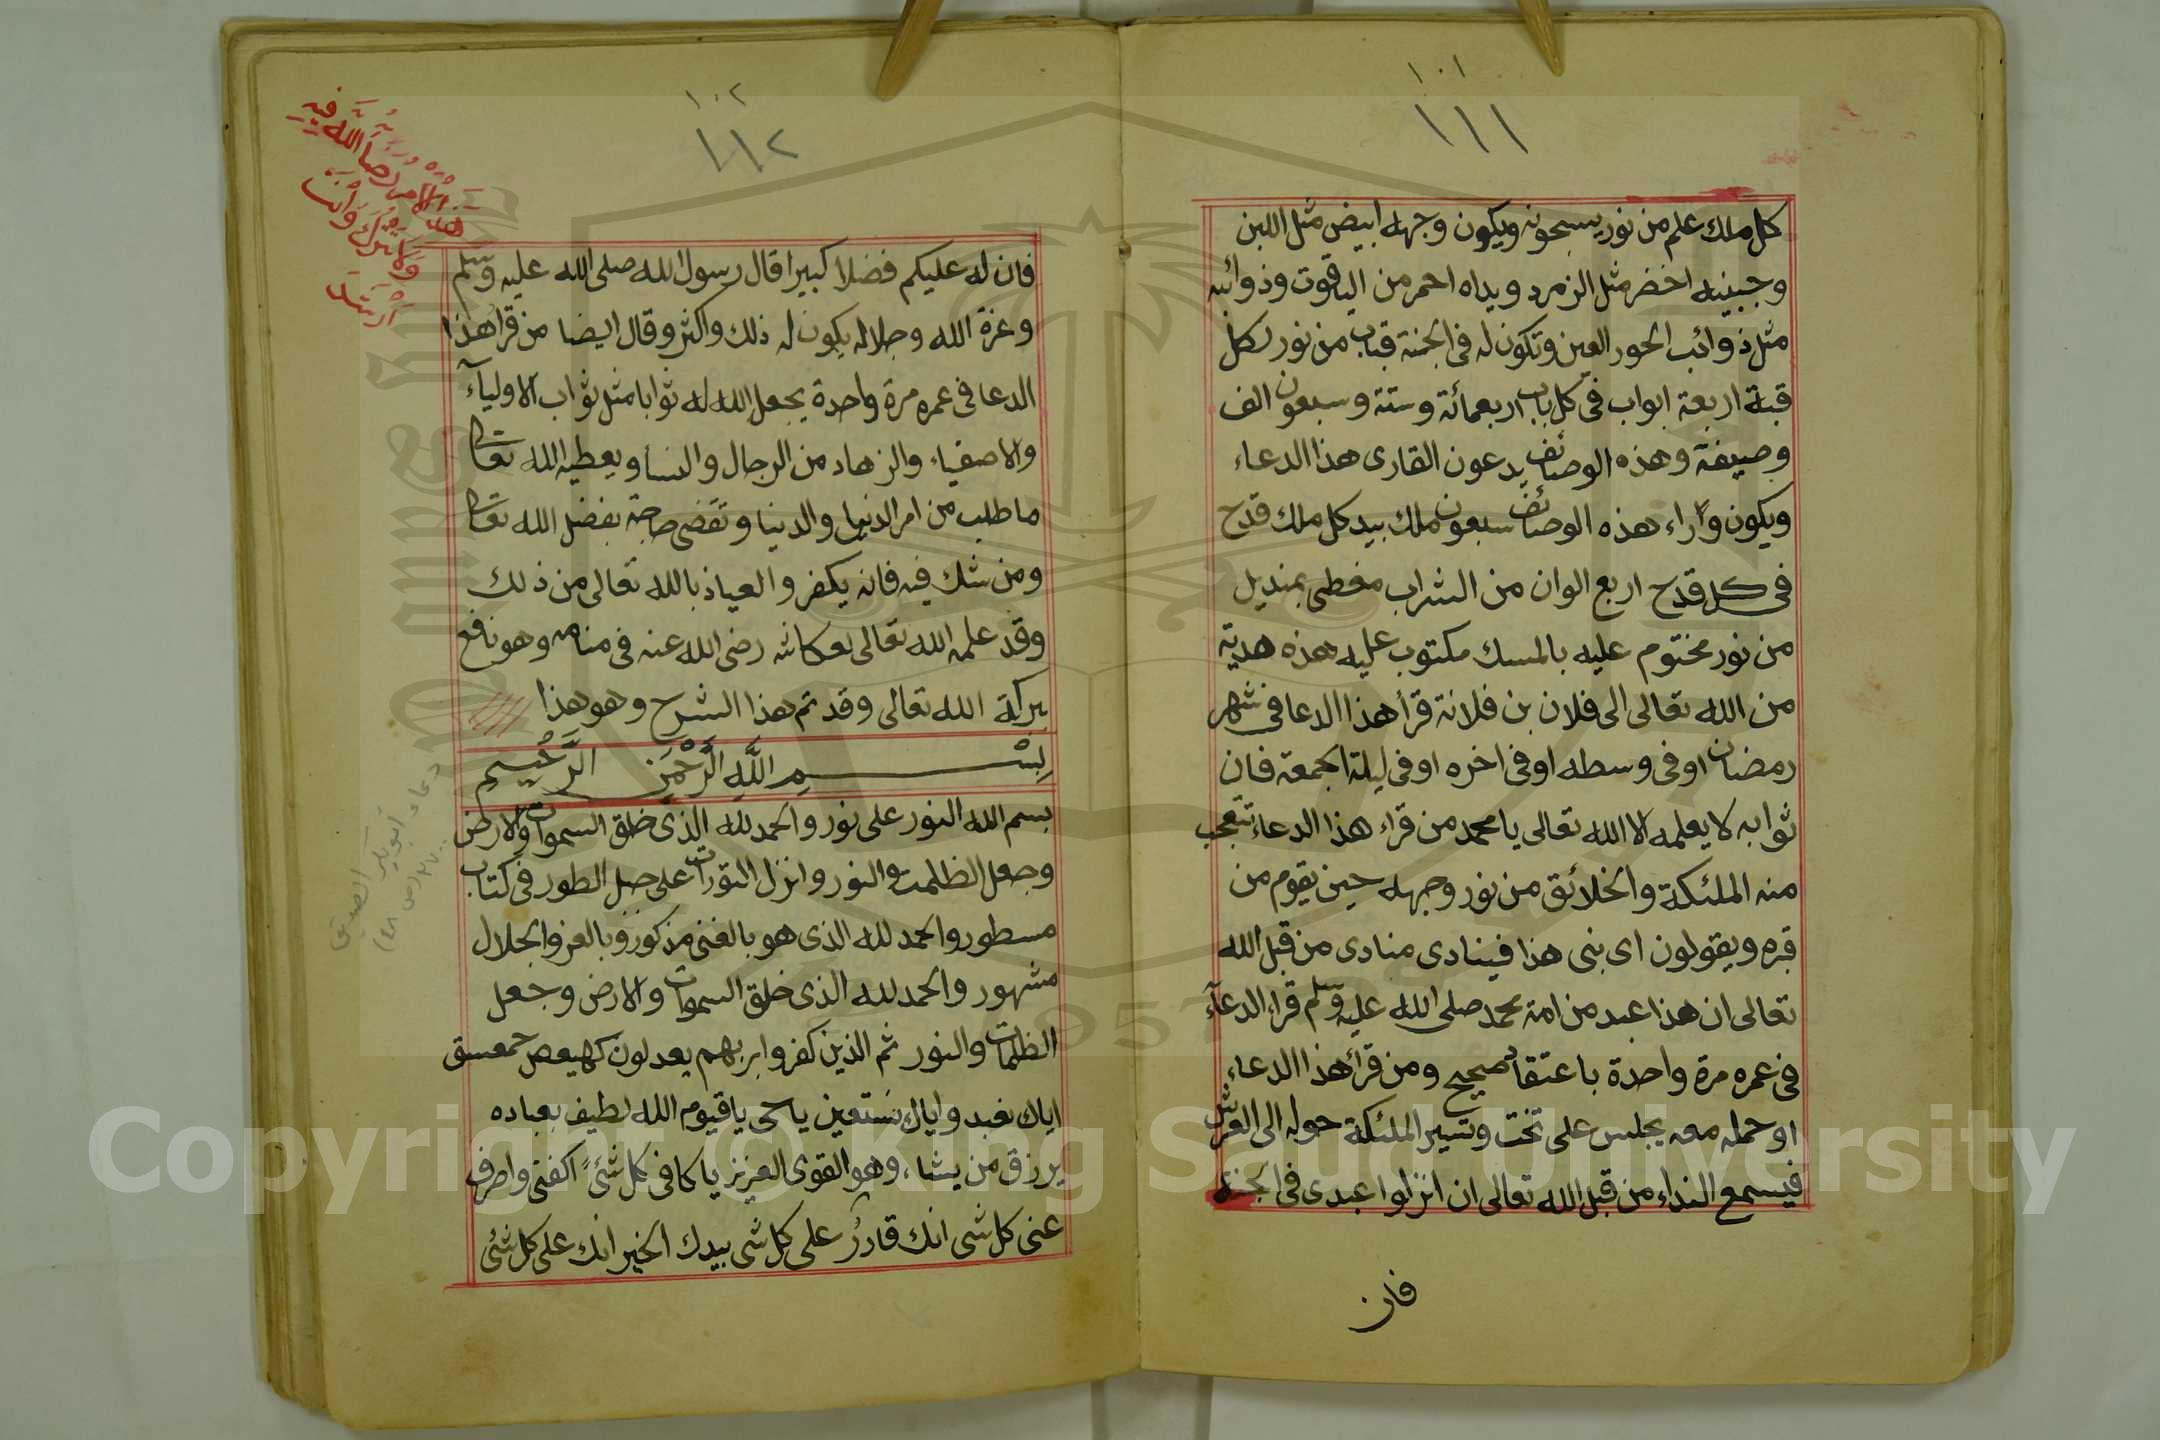 ١٠١
١١١
كل ملك علم من نور يسبحونه ويكون وجهه ابيض مثل اللبن
وجبينه اخضر مثل الزمرد ويداه احمر من الياقوت وذوائبه
مثل ذوائب الحور العين وتكون له في الجنة قباب من نور لكل
قبة اربعة ابواب في كل باب اربعمائة وستة وسبعون الف
وصيفة وهذه الوصائف يدعون القارى هذا الدعاء
ويكون وراء هذه الوصائف سبعون ملك بيد كل ملك قدح
في كل قدح اربع الوان من الشراب مغطى بمنديل
من نور مختوم عليه بالمسك مكتوب عليه هذه هدية
من الله تعالى الى فلان بن فلانة قرأ هذا الدعا في شهر
رمضان او في وسطه او في اخره او في ليلة الجمعة فان
ثوابه لا يعلمه الا الله تعالى يا محمد من قراء هذا الدعاء تتعجب
منه الملئكة والخلائق من نور وجهه حين يقوم من
قبره ويقولون اى بنى هذا فينادى منادى من قبل الله
تعالى ان هذا عبد من امة محمد صلى الله عليه وسلم قراء الدعآء
في عمره مرة واحدة باعتقاد صحيح ومن قرأ هذا الدعاء
او حمله معه يجلس على تخت وتسير الملئكة حوله الى العرش
فيسمع النداء من قبل الله تعالى ان انزلوا عبدى في الجنة
فان
١٠٢
١١٢
فان له عليكم فضلا كبيرا قال رسول الله صلى الله عليه وسلم
وعزة الله وجلاله يكون له ذلك واكثر وقال ايضا من قرا هذا
الدعا في عمره مرة واحدة يجعل الله له ثوابا مثل ثواب الاوليآء
والاصفياء والزهاد من الرجال والنسأ ويعطيه الله تعالى
ما طلب من امر الدنيا والدينا وتقضى حاجته بفضل الله تعالى
ومن شك فيه فانه يكفر والعياذ بالله تعالى من ذلك
وقد علمه الله تعالى لعكاشه رضى الله عنه في منامه وهو نافع
ببركة الله تعالى وقد تم هذا الشرح وهو هذا
بِسْمِ اللَّهِ الرَّحْمَنِ الرَّحْيم
بسم الله النور على نور والحمد لله الذى خلق السموات والارض
وجعل الظلمت والنور وانزل التورات على جبل الطور في كتاب
مسطور والحمد لله الذى هو بالغنى مذكور وبالعز والجلال
مشهور والحمد لله الذى خلق السموات والارض وجعل
الظلمات والنور ثم الذين كفروا بربهم يعدلون كهيعص حمعسق
اياك نعبد واياك نستعين يا حى يا قيوم الله لطيف بعباده
يرزق من يشاء وهو القوى العزيز يا كافى كل شئ اكفنى واصرف
عنى كل شى انك قادر على كل شى بيدك الخير انك على كل شئى
دعاء أبو بكر الصديق
Copyright © King Saud University